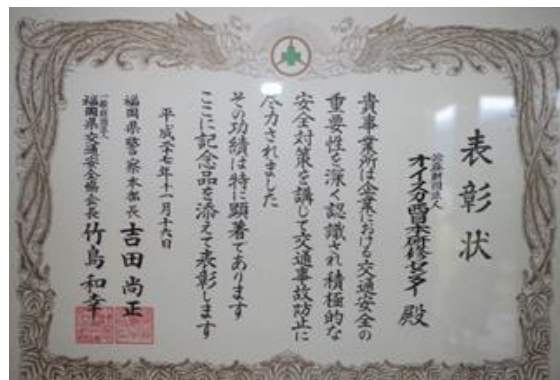 表彰状
公益財団法人
オイスカ西日本研修センター 殿
貴事業所は企業における交通安全の
重要性を深く認識され積極的な
安全対策を講じて交通事故防止に
尽力されました
その功績は特に顕著であります
ここに記念品を添えて表彰します
平成二十七年十一月十六日
福岡県警察本部長 吉田尚正
一般財団法人
福岡県交通安全協会長 竹島和幸